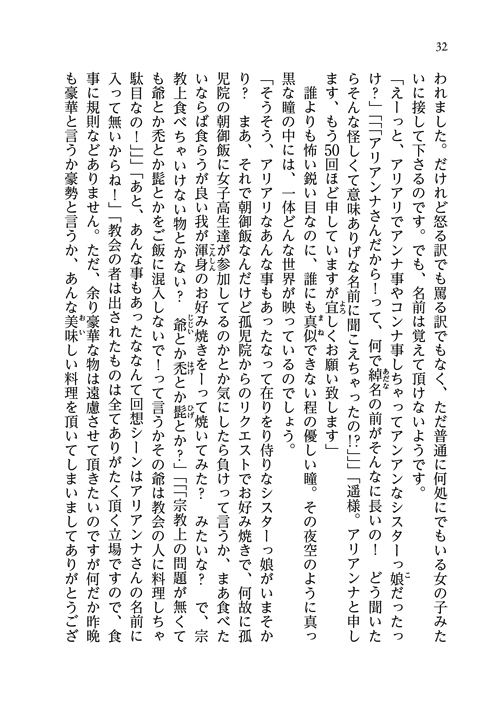 32
われました。だけれど怒る訳でも罵る訳でもなく、ただ普通に何処にでもいる女の子みた
いに接して下さるのです。でも、名前は覚えて頂けないようです。
「えーっと、アリアリでアンナ事やコンナ事しちゃってアンアンなシスターっ娘だったっ
け？」「「アリアンナさんだから！って、何で綽名の前がそんなに長いの！　どう聞いた
らそんな怪しくて意味ありげな名前に聞こえちゃったの!?」」「遥様。アリアンナと申し
ます、もう50回ほど申していますが宜しくお願い致します」
　誰よりも怖い鋭い目なのに、誰にも真似できない程の優しい瞳。その夜空のように真っ
黒な瞳の中には、一体どんな世界が映っているのでしょう。
「そうそう、アリアリなあんな事もあったなって在りをり侍りなシスターっ娘がいまそか
り？　まあ、それで朝御飯なんだけど孤児院からのリクエストでお好み焼きで、何故に孤
児院の朝御飯に女子高生達が参加してるのかとか気にしたら負けって言うか、まあ食べた
いならば食らうが良い我が渾身のお好み焼きをーって焼いてみた？　みたいな？　で、宗
教上食べちゃいけない物とかない？　爺とか禿とか髭とか？」「「宗教上の問題が無くて
も爺とか禿とか髭とかをご飯に混入しないで！って言うかその爺は教会の人に料理しちゃ
駄目なの！」」「あと、あんな事もあったななんて回想シーンはアリアンナさんの名前に
入って無いからね！」「教会の者は出されたものは全てありがたく頂く立場ですので、食
事に規則などありません。ただ、余り豪華な物は遠慮させて頂きたいのですが何だか昨晩
も豪華と言うか豪勢と言うか、あんな美味しい料理を頂いてしまいましてありがとうござ